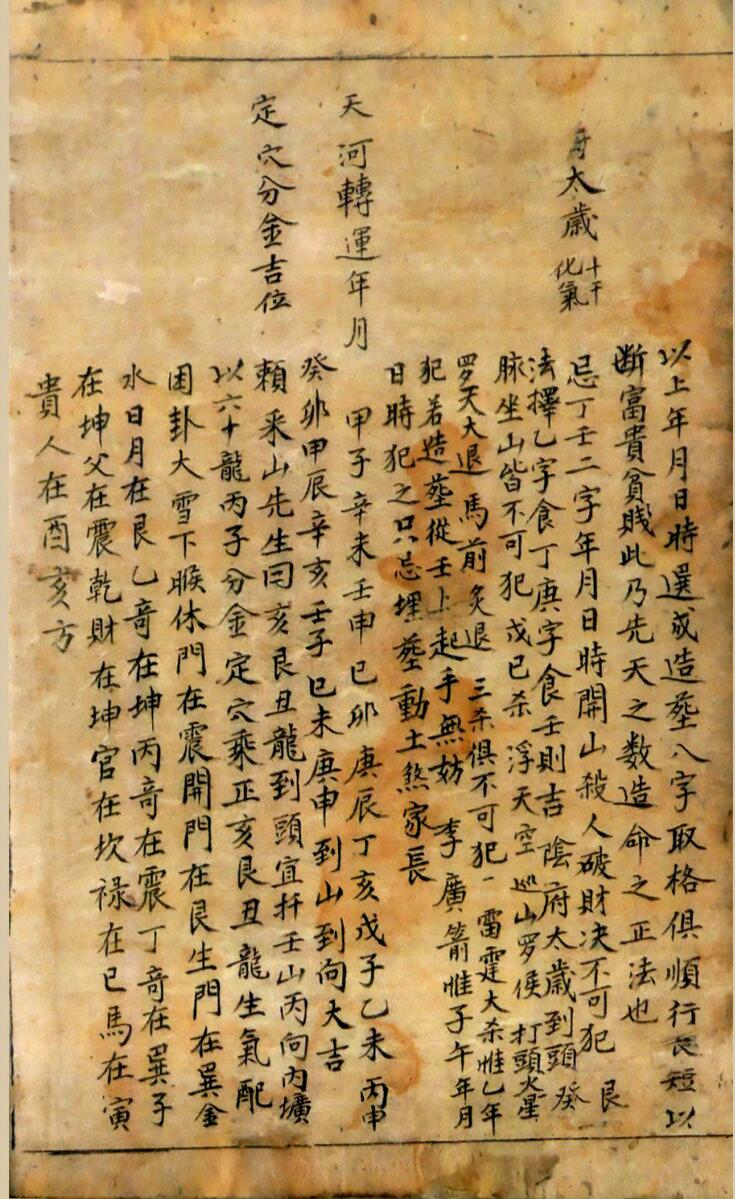 以上年月日時選成造塟八字取格俱順行長短以
断富貴貧賤此乃先天之数造命之正法也
太歲十干化氣
忌丁壬二字年月日時開山殺人破財决不可犯 艮
法擇乙字食丁庚字食壬則吉 陰府太歲到頭 癸
脉坐山皆不可犯戊巳杀 浮天空 巡山罗侯 打頭火星
罗天大退 馬前炙退 三杀俱不可犯一雷霆大杀惟乙年
犯若造塟從壬上起手無妨 李廣箭惟子午年月
日時犯之只忌埋塟動土煞家長
天河轉運年月
甲子辛未壬申巳卯庚辰丁亥戊子乙未丙申
癸卯甲辰辛亥壬子巳未庚申到山到向大吉
定穴分金吉位
賴釆山先生曰亥艮丑龍到頭宜扦壬山丙向内壙
以六十龍丙子分金定穴乘正亥艮丑龍生氣配
困卦大雪下㬋休門在震開門在艮生門在巽金
水日月在艮乙竒在坤丙竒在震丁竒在巽子
在坤父在震乾財在坤官在坎禄在巳馬在寅
貴人在酉亥方